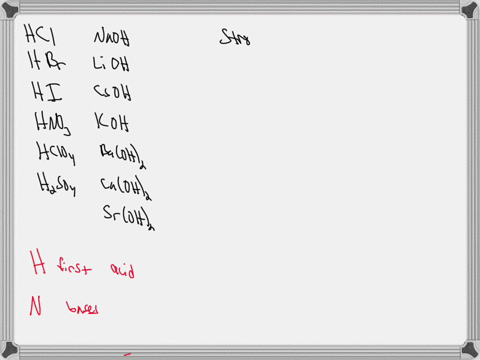 HCl NaOH Stro
HBr LiOH
HI CsOH
HNO₃ KOH
HClO₄ Ba(OH)₂
H₂SO₄ Ca(OH)₂
Sr(OH)₂
H first acid
N bases